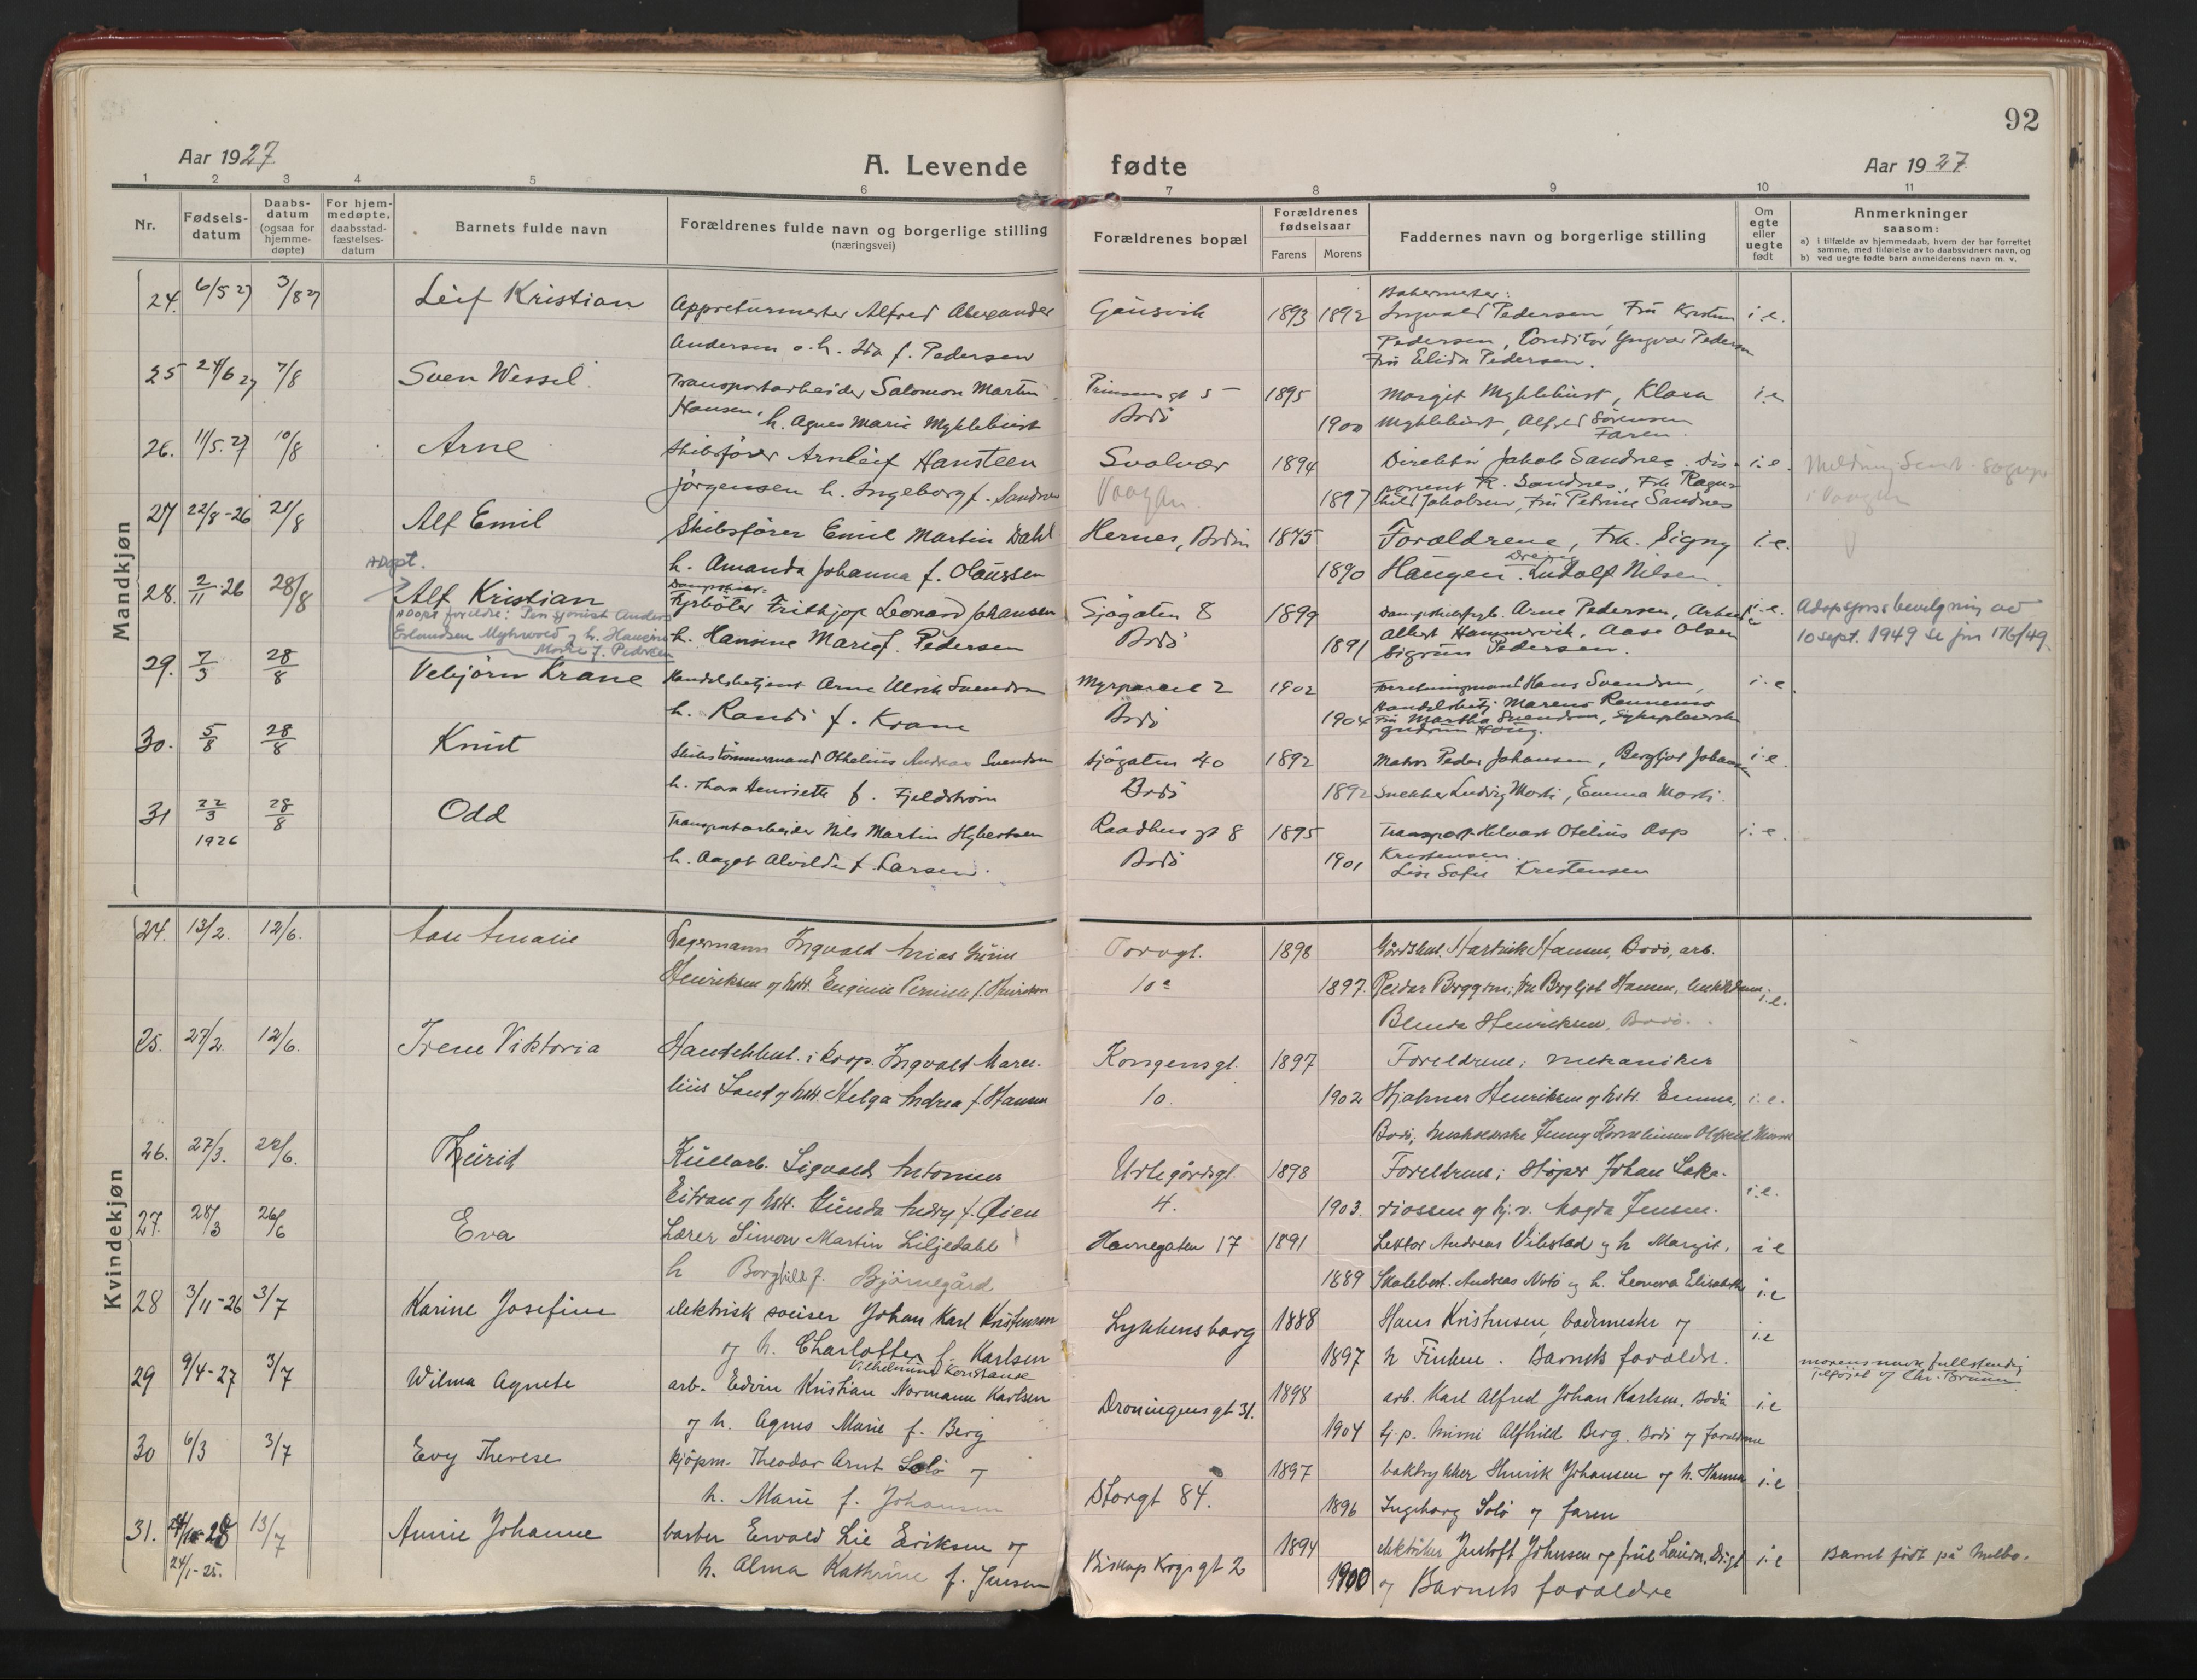 92
Aar 1927
A. Levende fødte
Aar 1927.
1 2 3 4 5 6 7 8 9 10 11
Nr.
Fødsels-
datum
Daabs-
datum
(ogsaa for
hjemme-
døpte)
For hjem-
medøpte,
daabsstad-
fæstelses-
datum
Barnets fulde navn
Forældrenes fulde navn og borgerlige stilling
(næringsvei)
Forældrenes bopæl
Forældrenes
fødselsaar
Farens Morens
Faddernes navn og borgerlige stilling
Om
egte
eller
uegte
født
Anmerkninger
saasom:
a) i tilfælde av hjemmedaab, hvem der har forrettet
samme, med tilføielse av to daabsvidners navn, og
b) ved uegte fødte barn anmelderens navn m. v.
Mandkjøn
24. 6/5 27 3/8 27 Leif Kristian Appreturmester Alfred Alexander Gausvik 1893 1892 Ingvald Pedersen, Fru Kristine i.e.
Andersen o. h. Ida f. Pedersen Pedersen, Conditor Yngvar Pedersen
Fru Elida Pedersen.
25 24/6 27 7/8 Sven Wessel Transportarbeider Salomon Martin Prinsens gt 5 1895 Margit Myklebust, Klara i.e
Hansen, h. Agnes Marie Myklebust Bodö 1900 Myklebust, Alfred Sörensen
Faren.
26. 11/5.27 10/8 Arne Skibsförer Arnleif Hansteen Svolvær 1894 Direktör Jakob Sandnes. Dis- i.e.
Jörgensen h. Ingeborg f. Sandnes Vaagan. 1897 ponent R. Sandnes, Frk Ragn-
hild Jakobsen, Fru Petrine Sandnes
27 22/8-26 21/8 Alf Emil Skibsförer Emil Martin Dahl Hernes, Bodin 1875 Forældrene, Frk. Signy i.e.
h. Amanda Johanna f. Olaussen 1890 Haugen. Ludolf Nilsen.
Adopt.
28. 2/11-26 28/8 Alf Kristian Fyrböter Frithjof Leonard Johansen Sjögaten 8 1899 Arne Pedersen, Arbeid. i.e. Adopsjonsbevilgning av
Adopt foreldre: Pensjonist Anders
Erlandsen Myhrvold og h. Hansine
Marie f. Pedersen
h. Hansine Marie f. Pedersen Bodö 1891 Albert Hammervik, Aase Olsen 10 sept. 1949 se jnr 176/49.
Sigrun Pedersen.
29. 7/3 28/8 Vebjörn Krane Handelsbetjent Arne Ulrik Svendsen Myrparcel 2 1902 Hans Svendsen, i.e.
h. Randi f. Krane Bodö 1904 Handelsbetj Marens Rennemo
Fru Martha Svendsen, Sykepleierske
Gudrun Haug.
30. 5/8 28/8 Knut Skibstömmermand Othelius Andreas Svendsen Sjögaten 40 1892 Matros Peder Johansen, Bergljot Johansen i.e.
h. Thora Henriette f. Fjeldström Bodö 1892 Snekker Ludvig Morti, Emma Morti.
31 22/3 28/8 Odd Transportarbeider Nils Martin Hybertsen Raadhus gt 8 1895 Transport Helvart Otelius Asp i.e.
1926
h. Aagot Alvilde f. Larsen. Bodö 1901 Kristensen.
Lise Sofie Kristensen
Kvindekjøn
24. 13/2. 12/6. Aase Amalie Lagermann Ingvald Torvgt. 1898 Hartvik Hansen, Bodö, arb.
Henriksen og hstr. Eugenie f. Henriksen 10a 1897. Reidar Berggren; fru Bergljot Hansen, i.e.
Blenda Henriksen, Bodö.
25. 27/2. 12/6. Irene Viktoria Handelsbest. i koop. Ingvald Marce- Kongensgt. 1897 Foreldrene; mekaniker
lius Sand og hstr. Helga Andrea f. Hansen 10. 1902 Hjalmar Henriksen og hstr. Emma, i.e.
26. 27/3. 22/6. Thurid Kullarb. Sigvald Antonius Urtegårdsgt. 1898 Foreldrene; støper Johan Saka-
Eitran og hstr. Gunda f. Øien 4. 1903. riassen og hj.v. Magda Jensen. i.e.
27. 28/3 26/6 Eva Lærer Simon Martin Liljedahl Havnegaten 17 1891 Lektor Andreas Vibstad og h Margit. i e
h Borghild f. Björnegård 1889 Skolebest. Andreas Moló og h. Leonora Elisabeth i.e
28 3/11-26 3/7 Karine Josefine elektrisk sveiser Johan Karl Kristensen Lykkensborg 1888 Hans Kristensen, bademester og i.e
og h. Charlotte f. Karlsen 1897 h Finken. Barnets forældre.
Vilhelmine Konstanse morens navn fullstendig
tilföiet af Chr. Bruun.
29 9/4-27 3/7 Wilma Agnete arb. Edvin Kristian Normann Karlsen Dronningens gt 31. 1898 arb. Karl Alfred Johan Karlsen, Bodö i.e
og h. Agnes Marie f. Berg 1904 tj.p. Mimi Alfhild Berg. Bodö og forældrene
30 6/3 3/7 Evy Therese kjöpm. Theodor Arnt Solö og Storgt 84. 1897 boktrykker Henrik Johansen og h. Hanna i.e
h. Marie f. Johansen 1896 Ingeborg Solö og faren
31. 13/7 Annie Johanne barber Ewald Lie Eriksen og Biskop Krogs gt 2 1894 elektriker Johnsen og frue Laura, Digt i.e Barnet født på Melbo.
24/1-25.
h. Alma Kathrine f. Jensen 1900 og Barnets forældre